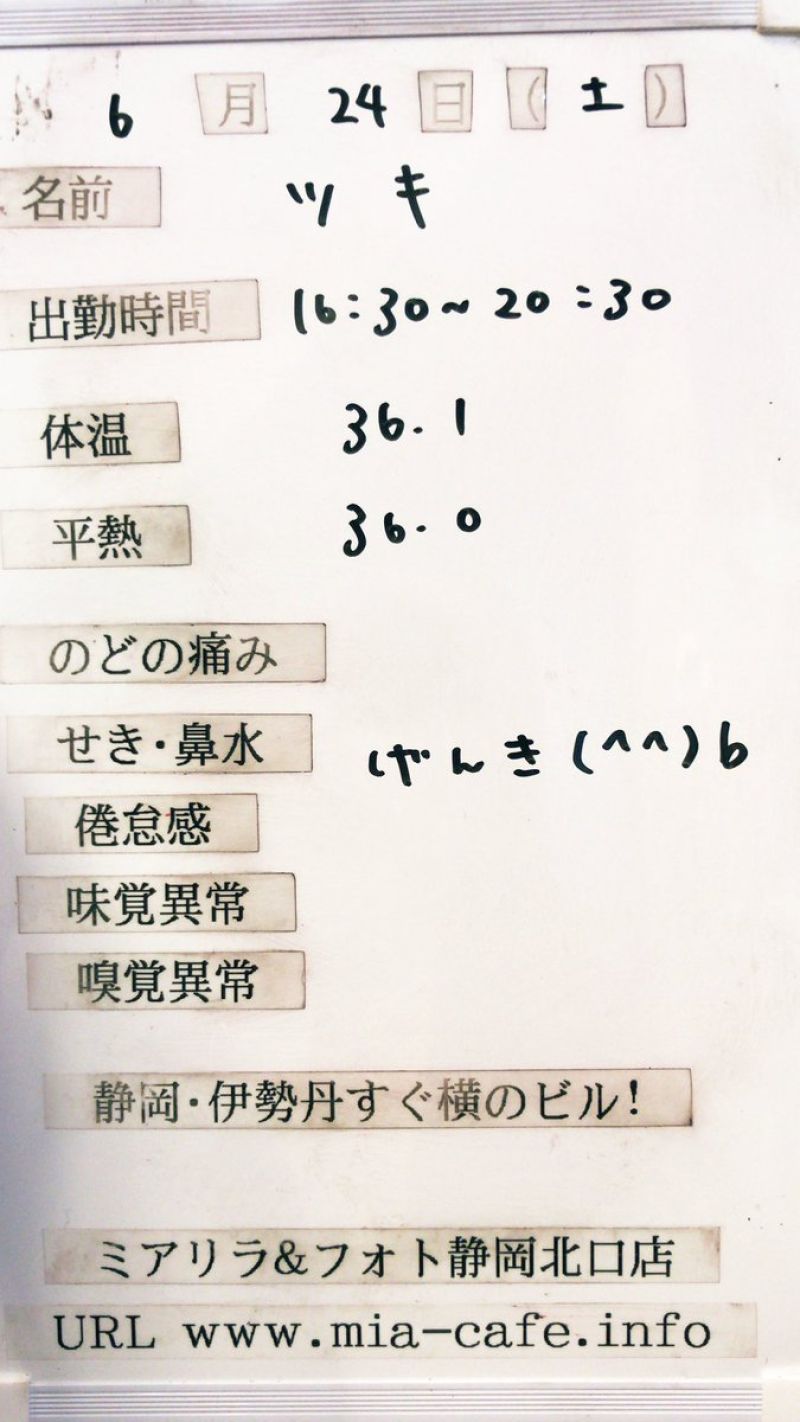 6月24日(土)
名前 ツキ
出勤時間 16:30~20:30
体温 36.1
平熱 36.0
のどの痛み
せき・鼻水 げんき(^^)b
倦怠感
味覚異常
嗅覚異常
静岡・伊勢丹すぐ横のビル!
ミアリラ&フォト静岡北口店
URL www.mia-cafe.info